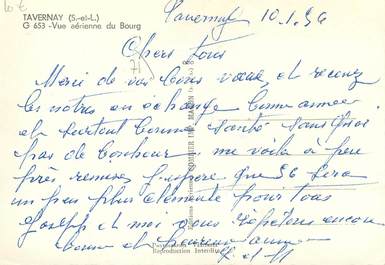 10 €
TAVERNAY (S.-et-L.)
G 653 - Vue aérienne du Bourg
Tavernay 10.1.56
Chers tous
71
Merci de vos bons vœux et recevez
les nôtres en échange bonne année
et surtout bonne santé sans quoi
pas de bonheur. me voilà à peu
près remise j'espère que 56 sera
un peu plus clémente pour tous
Joseph et moi vous répétons encore
bonne et heureuse année
COMBIER IMP. MACON
Reproduction Interdite